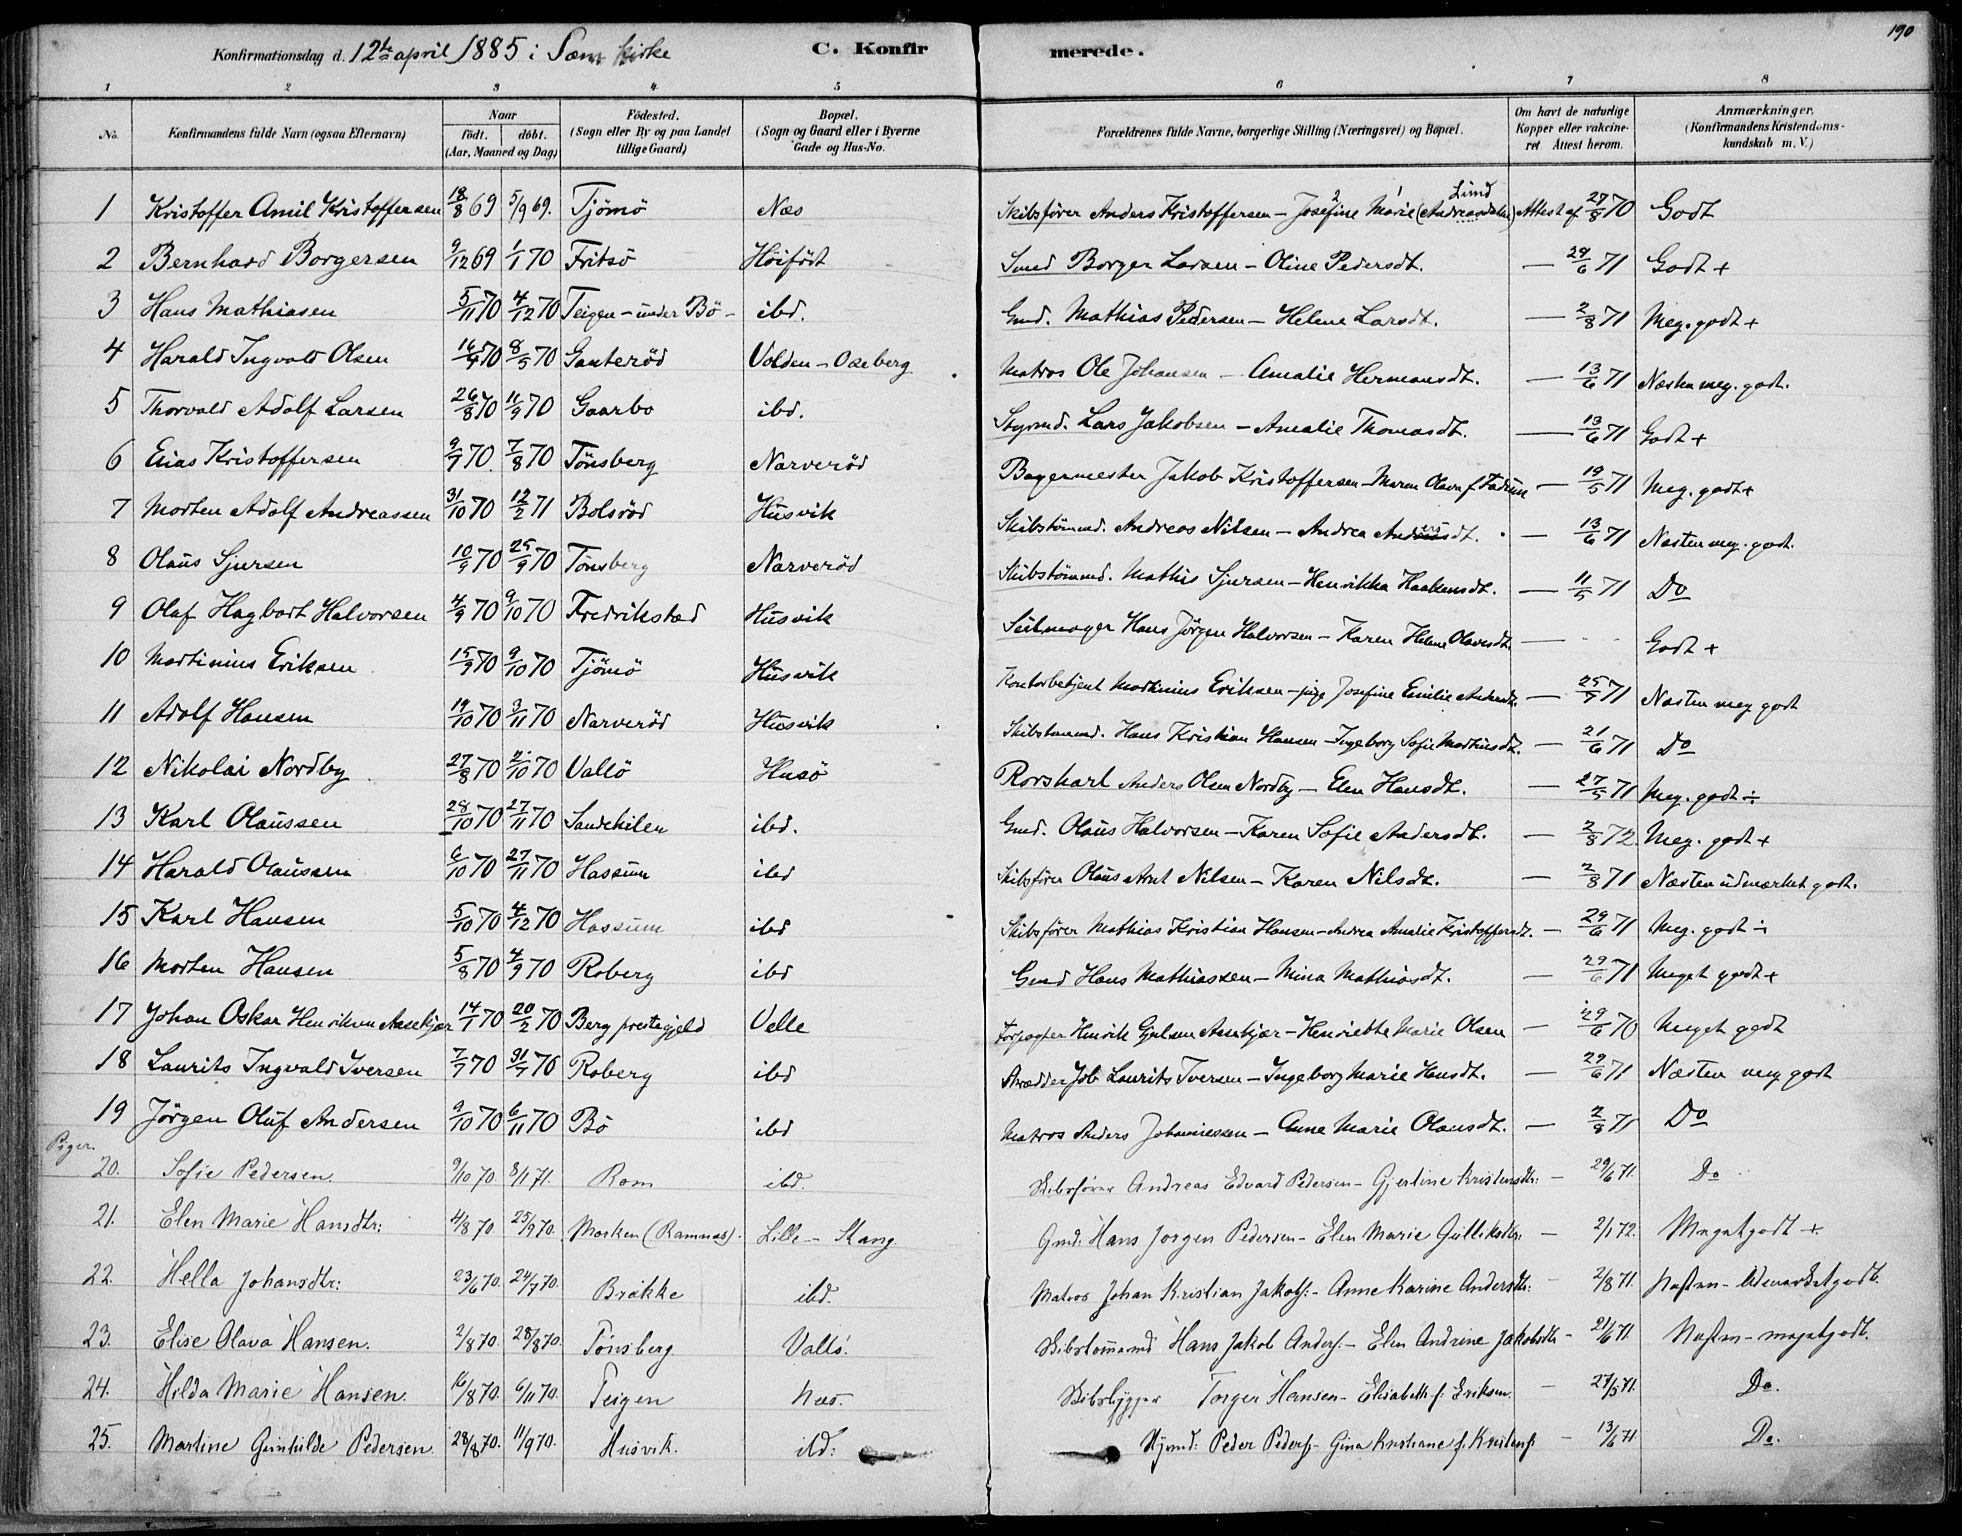 190
Konfirmationsdag d. 12te april 1885 i Sem kirke C. Konfirmerede.
1 2 3 4 5 6 7 8
No. Konfirmandens fulde Navn (ogsaa Efternavn) Naar födt. döbt. (Aar, Maaned og Dag) Födested. (Sogn eller By og paa Landet tillige Gaard) Bopæl. (Sogn og Gaard eller i Byerne Gade og Hus-No. Forældrenes fulde Navne, borgerlige Stilling (Næringsvei) og Bopæl. Om havt de naturlige Kopper eller vakcineret Attest herom. Anmærkninger. (Konfirmandens Kristendomskundskab m. V.)
1 Kristoffer Amil Kristoffersen 18/8 69 5/9 69. Tjömö Næs Skibsfører Anders Kristoffersen - Josefine Marie (Andreasdatter) Lund Attest af 27/8 70 Godt
2 Bernhard Borgersen 9/12 69 1/1 70 Fritsö Höifödt Smed Borger Larsen - Oline Pedersdt. — 29/6 71 Godt +
3 Hans Mathiasen 5/11 70 4/12 70 Teigen - under Bö - ibd. Gmd. Mathias Pedersen - Helene Larsdt. — 2/8 71 Meg. godt +
4 Harald Ingvald Olsen 16/4 70 8/5 70 Gauteröd Volden - Oseberg Matros Ole Johansen - Amalie Hermansdt. — 13/6 71 Næsten meg. godt.
5 Thorvald Adolf Larsen 26/8 70 11/9 70 Gaarbo ibd. Styrmd. Lars Jakobsen - Amalie Thomasdt. — 13/6 71 Godt +
6 Elias Kristoffersen 9/7 70. 7/8 70 Tönsberg Narveröd Bagermester Jakob Kristoffersen - Maren Olava f. Fadum — 19/5 71 Meg. godt +
7 Morten Adolf Andreassen 31/10 70 12/2 71 Bolsröd Husvik Skibstömmd. Andreas Nilsen - Andrea Andersdt. — 13/6 71 Næsten meg. godt.
8 Olaus Sjursen 10/9 70 25/9 70 Tönsberg Narveröd Skibstömmd. Mathis Sjursen - Henrikka Haakensdt. — 11/5 71 Do
9 Olaf Hagbart Halvorsen 4/9 70 9/10 70 Fredrikstad Husvik Seilmager Hans Jörgen Halvorsen - Karen Helene Olavesdt. — Godt +
10 Martinius Eriksen 15/9 70 9/10 70 Tjömö Husvik Kontorbetjent Martinius Eriksen - pige Josefine Emilie Andersdt. — 25/5 71 Næsten meg godt
11 Adolf Hansen 19/10 70 3/11 70 Narveröd Husvik Skibstömmd. Hans Kristian Hansen - Ingeborg Sofie Mathisdt. — 21/6 71 Do
12 Nikolai Nordby 27/8 70 2/10 70 Vallö Husö Rorskarl Anders Olsen Nordby - Elen Hansdt. — 27/5 71 Meg. godt ÷
13 Karl Olaussen 28/10 70 27/11 70 Sandekilen ibd. Gmd. Olaus Halvorsen - Karen Sofie Andersdt. — 2/8 72 Meg. godt +
14 Harald Olaussen 6/10 70 27/11 70 Hassum ibd Skibsfører Olaus Arnt Nilsen - Karen Nilsdt. — 2/8 71 Næsten udmærket godt.
15 Karl Hansen 5/10 70 4/12 70 Hassum ibd Skibsfører Mathias Kristian Hansen - Andrea Amalie Kristoffersdt. — 29/6 71 Meg. godt ÷
16 Morten Hansen 5/8 70 4/9 70 Roberg ibd Gmd Hans Mathiassen - Mina Mathiasdt. — 29/6 71 Meget godt +
17 Johan Oskar Henriksen Aasekjær 14/1 70 20/2 70 Berg prestegjeld Velle Forpagter Henrik Gjelsen Aasekjær - Henriette Marie Olsen — 29/6 70 Meget godt
18 Laurits Ingvald Iversen 7/7 70 31/7 70 Roberg ibd Skrædder Job Laurits Iversen - Ingeborg Marie Hansdt. — 29/6 71 Næsten meg godt
19 Jörgen Oluf Andersen 9/10 70 6/11 70 Bö ibd Matros Anders Johannessen - Anne Marie Olausdt. — 2/8 71 Do
Piger.
20. Sofie Pedersen. 9/10 70. 8/1 71. Rom ibd. Skibsfører Andreas Edvard Pedersen - Gjertine Kristensdtr: — 29/6 71. Do
21. Elen Marie Hansdtr: 4/8 70. 25/9 70. Morken (Ramnæs). Lille - Stang Gmd: Hans Jorgen Pedersen - Elen Marie Gulliksdtr: — 2/1 72. Megetgodt +.
22. Hella Johansdtr: 23/6 70. 24/7 70. Brække ibd. Matros Johan Kristian Jakobs:- Anne Karine Andersdtr: — 2/8 71. Næsten - Udmærketgodt.
23. Elise Olava Hansen. 2/8 70. 28/8 70. Tönsberg Vallö. Skibstömmmd Hans Jakob Anders:- Elen Andrine Jakobsdtr — 21/6 71. Næsten - megetgodt.
24. Hilda Marie Hansen. 16/8 70. 6/11 70. Teigen Næs. Skibsbygger Torger Hansen - Elisabeth f. Eriksen. — 27/5 71. Do.
25. Martine Gunhilde Pedersen 28/8 70. 11/9 70. Husvik. ibd: Styrmd: Peder Peders:- Gina Kristiane f. Kristens: — 13/6 71 Do.